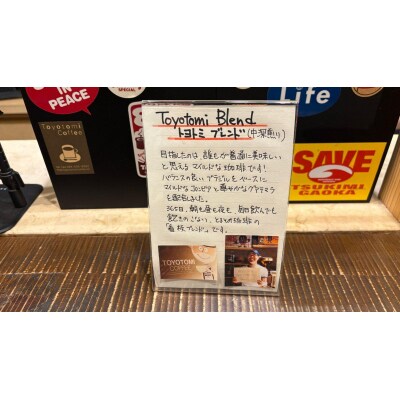 IN
PEACE
SPECIAL
Life
Toyotomi
Coffee
SAVE
TSUKIMI
GAOKA
Toyotomi Blend
トヨトミ ブレンド(中深煎り)
目指したのは、誰もが普通に美味しい
と思えるマイルドな珈琲です!
バランスの良いブラジルをベースに、
マイルドなコロンビアと華やかなグアテマラ
を配合しました。
365日、朝も昼も夜も、毎日飲んでも
飽きのこない、とよとみ珈琲の
「看板ブレンド」です。
TOYOTOMI
COFFEE